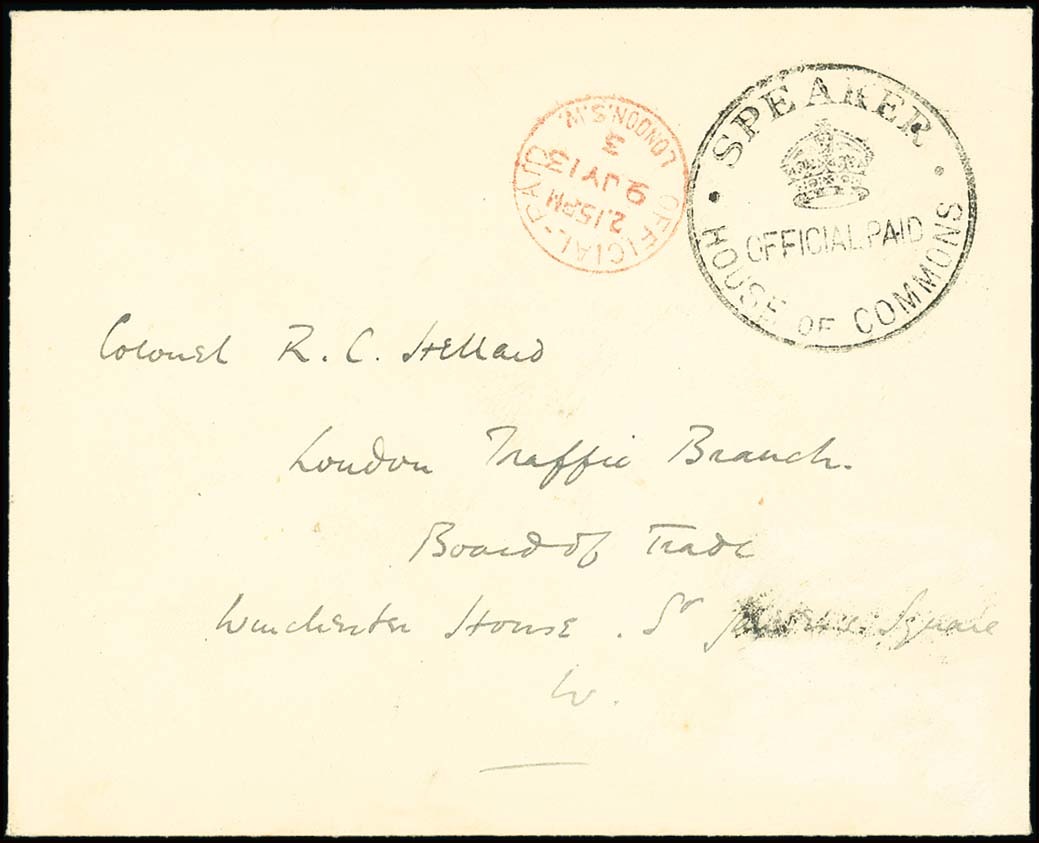 SPEAKER
OFFICIAL PAID
HOUSE OF COMMONS
LONDON.S.W.
3
9 JY 13
2.15PM
OFFICIAL-PAID
Colonel R. C. Hellard
London Traffic Branch.
Board of Trade
Winchester House. St Square
W.